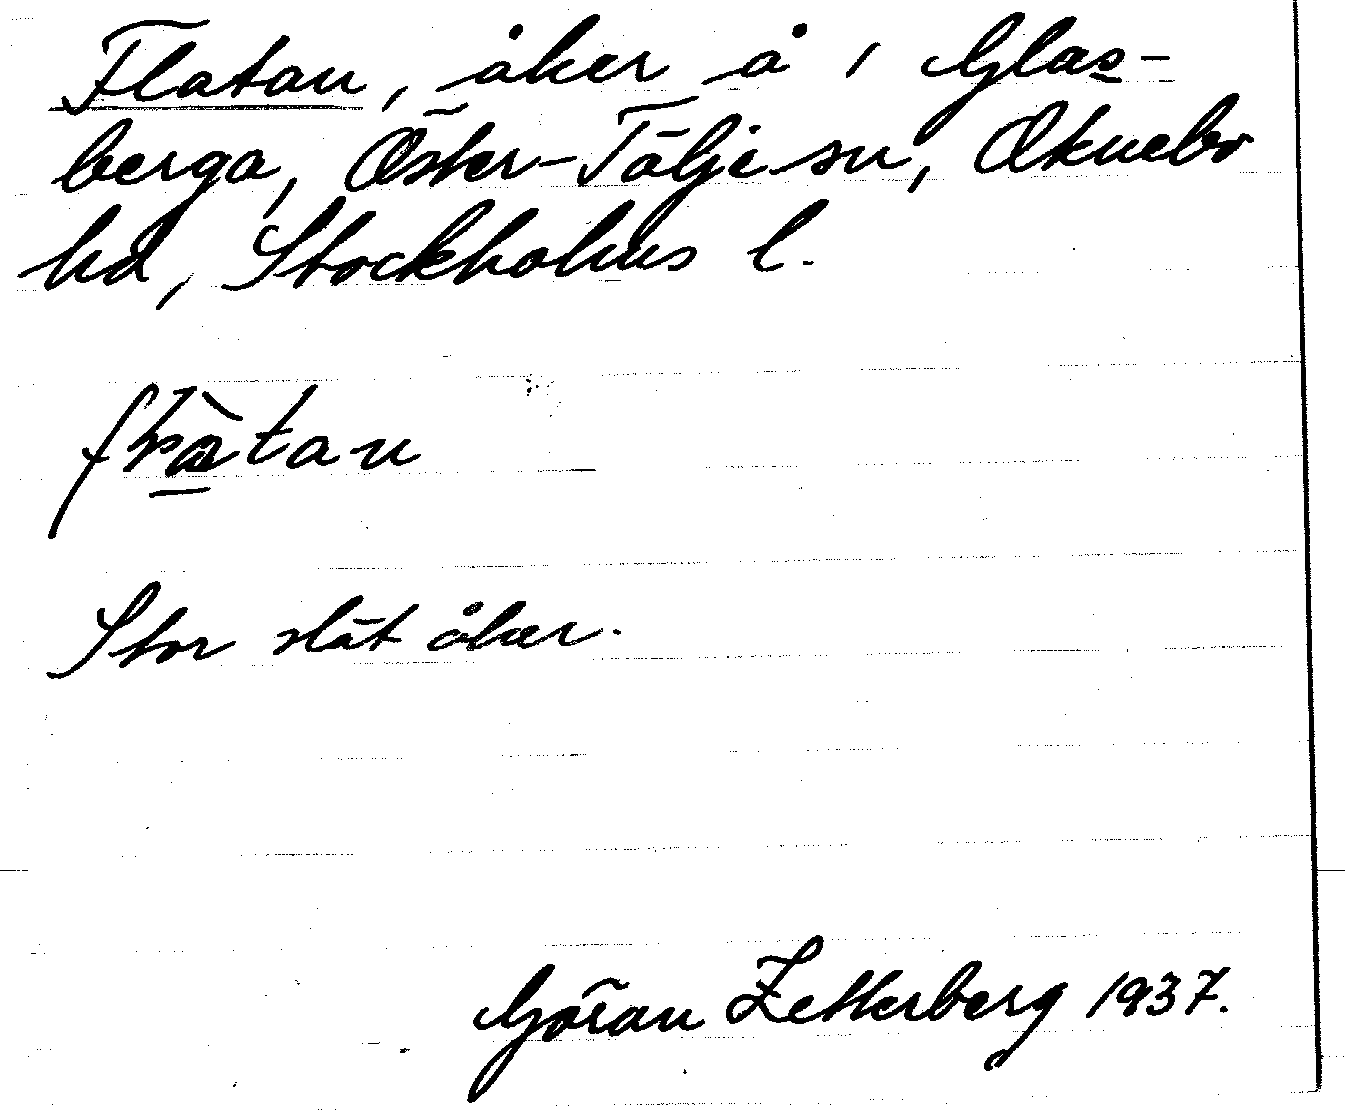 Flatan, åker å 1 Glas-
berga, Öster-Tälje sn, Öknebo
hd, Stockholms l.
Stor slät åker.
Göran Zetterberg 1937.